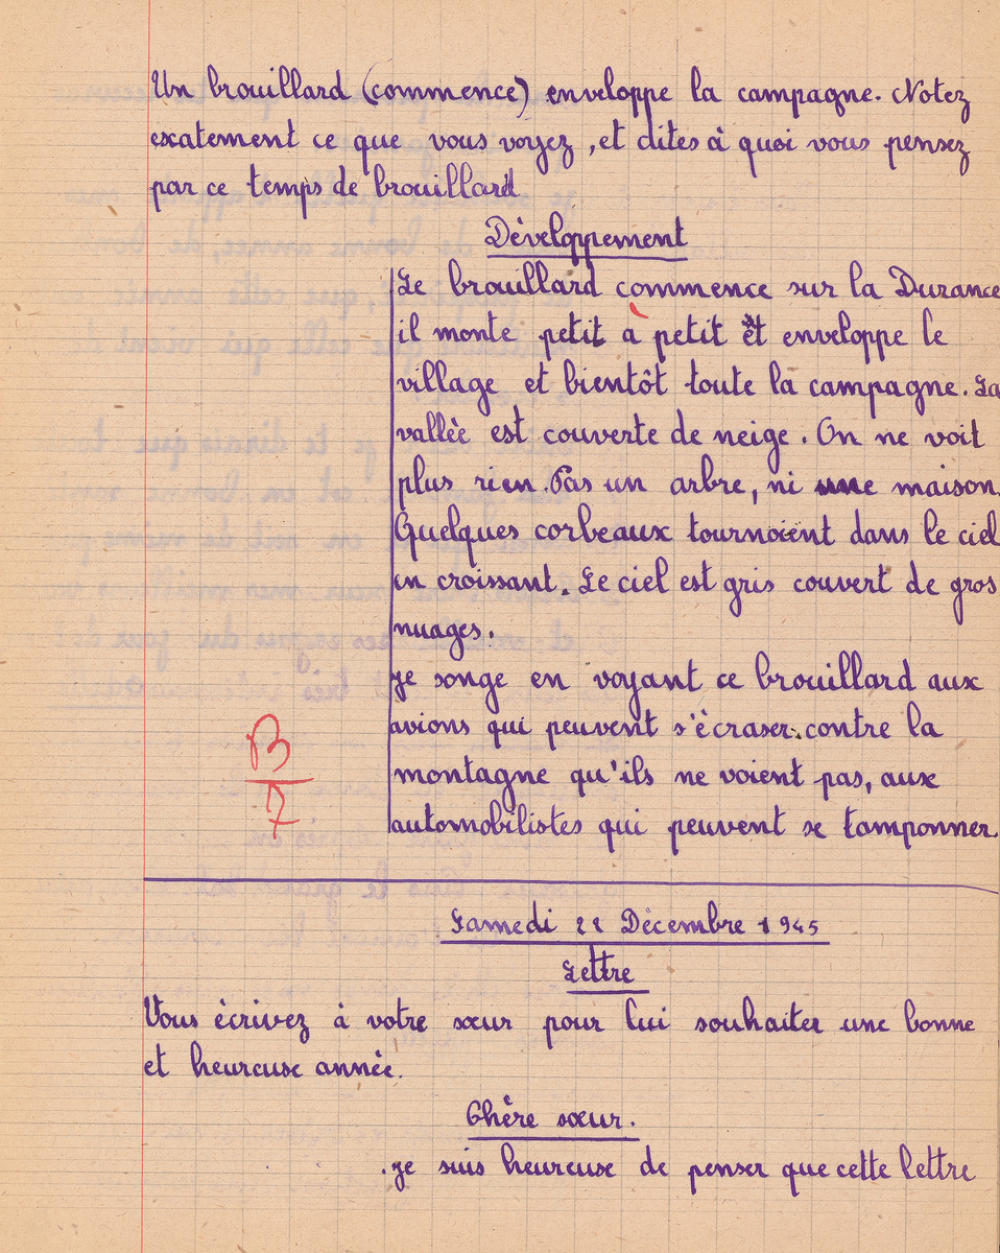 Un brouillard (commence) enveloppe la campagne. Notez
exatement ce que vous voyez, et dites à quoi vous pensez
par ce temps de brouillard
Développement
Le brouillard commence sur la Durance
il monte petit à petit et enveloppe le
village et bientôt toute la campagne. La
vallée est couverte de neige. On ne voit
plus rien. Pas un arbre, ni une maison.
Quelques corbeaux tournoient dans le ciel
en croissant. Le ciel est gris couvert de gros
nuages.
Je songe en voyant ce brouillard aux
avions qui peuvent s'écraser contre la
montagne qu'ils ne voient pas, aux
automobilistes qui peuvent se tamponner.
B
7
Samedi 22 Décembre 1945
Lettre
Vous écrivez à votre sœur pour lui souhaiter une bonne
et heureuse année.
Chère sœur.
Je suis heureuse de penser que cette lettre